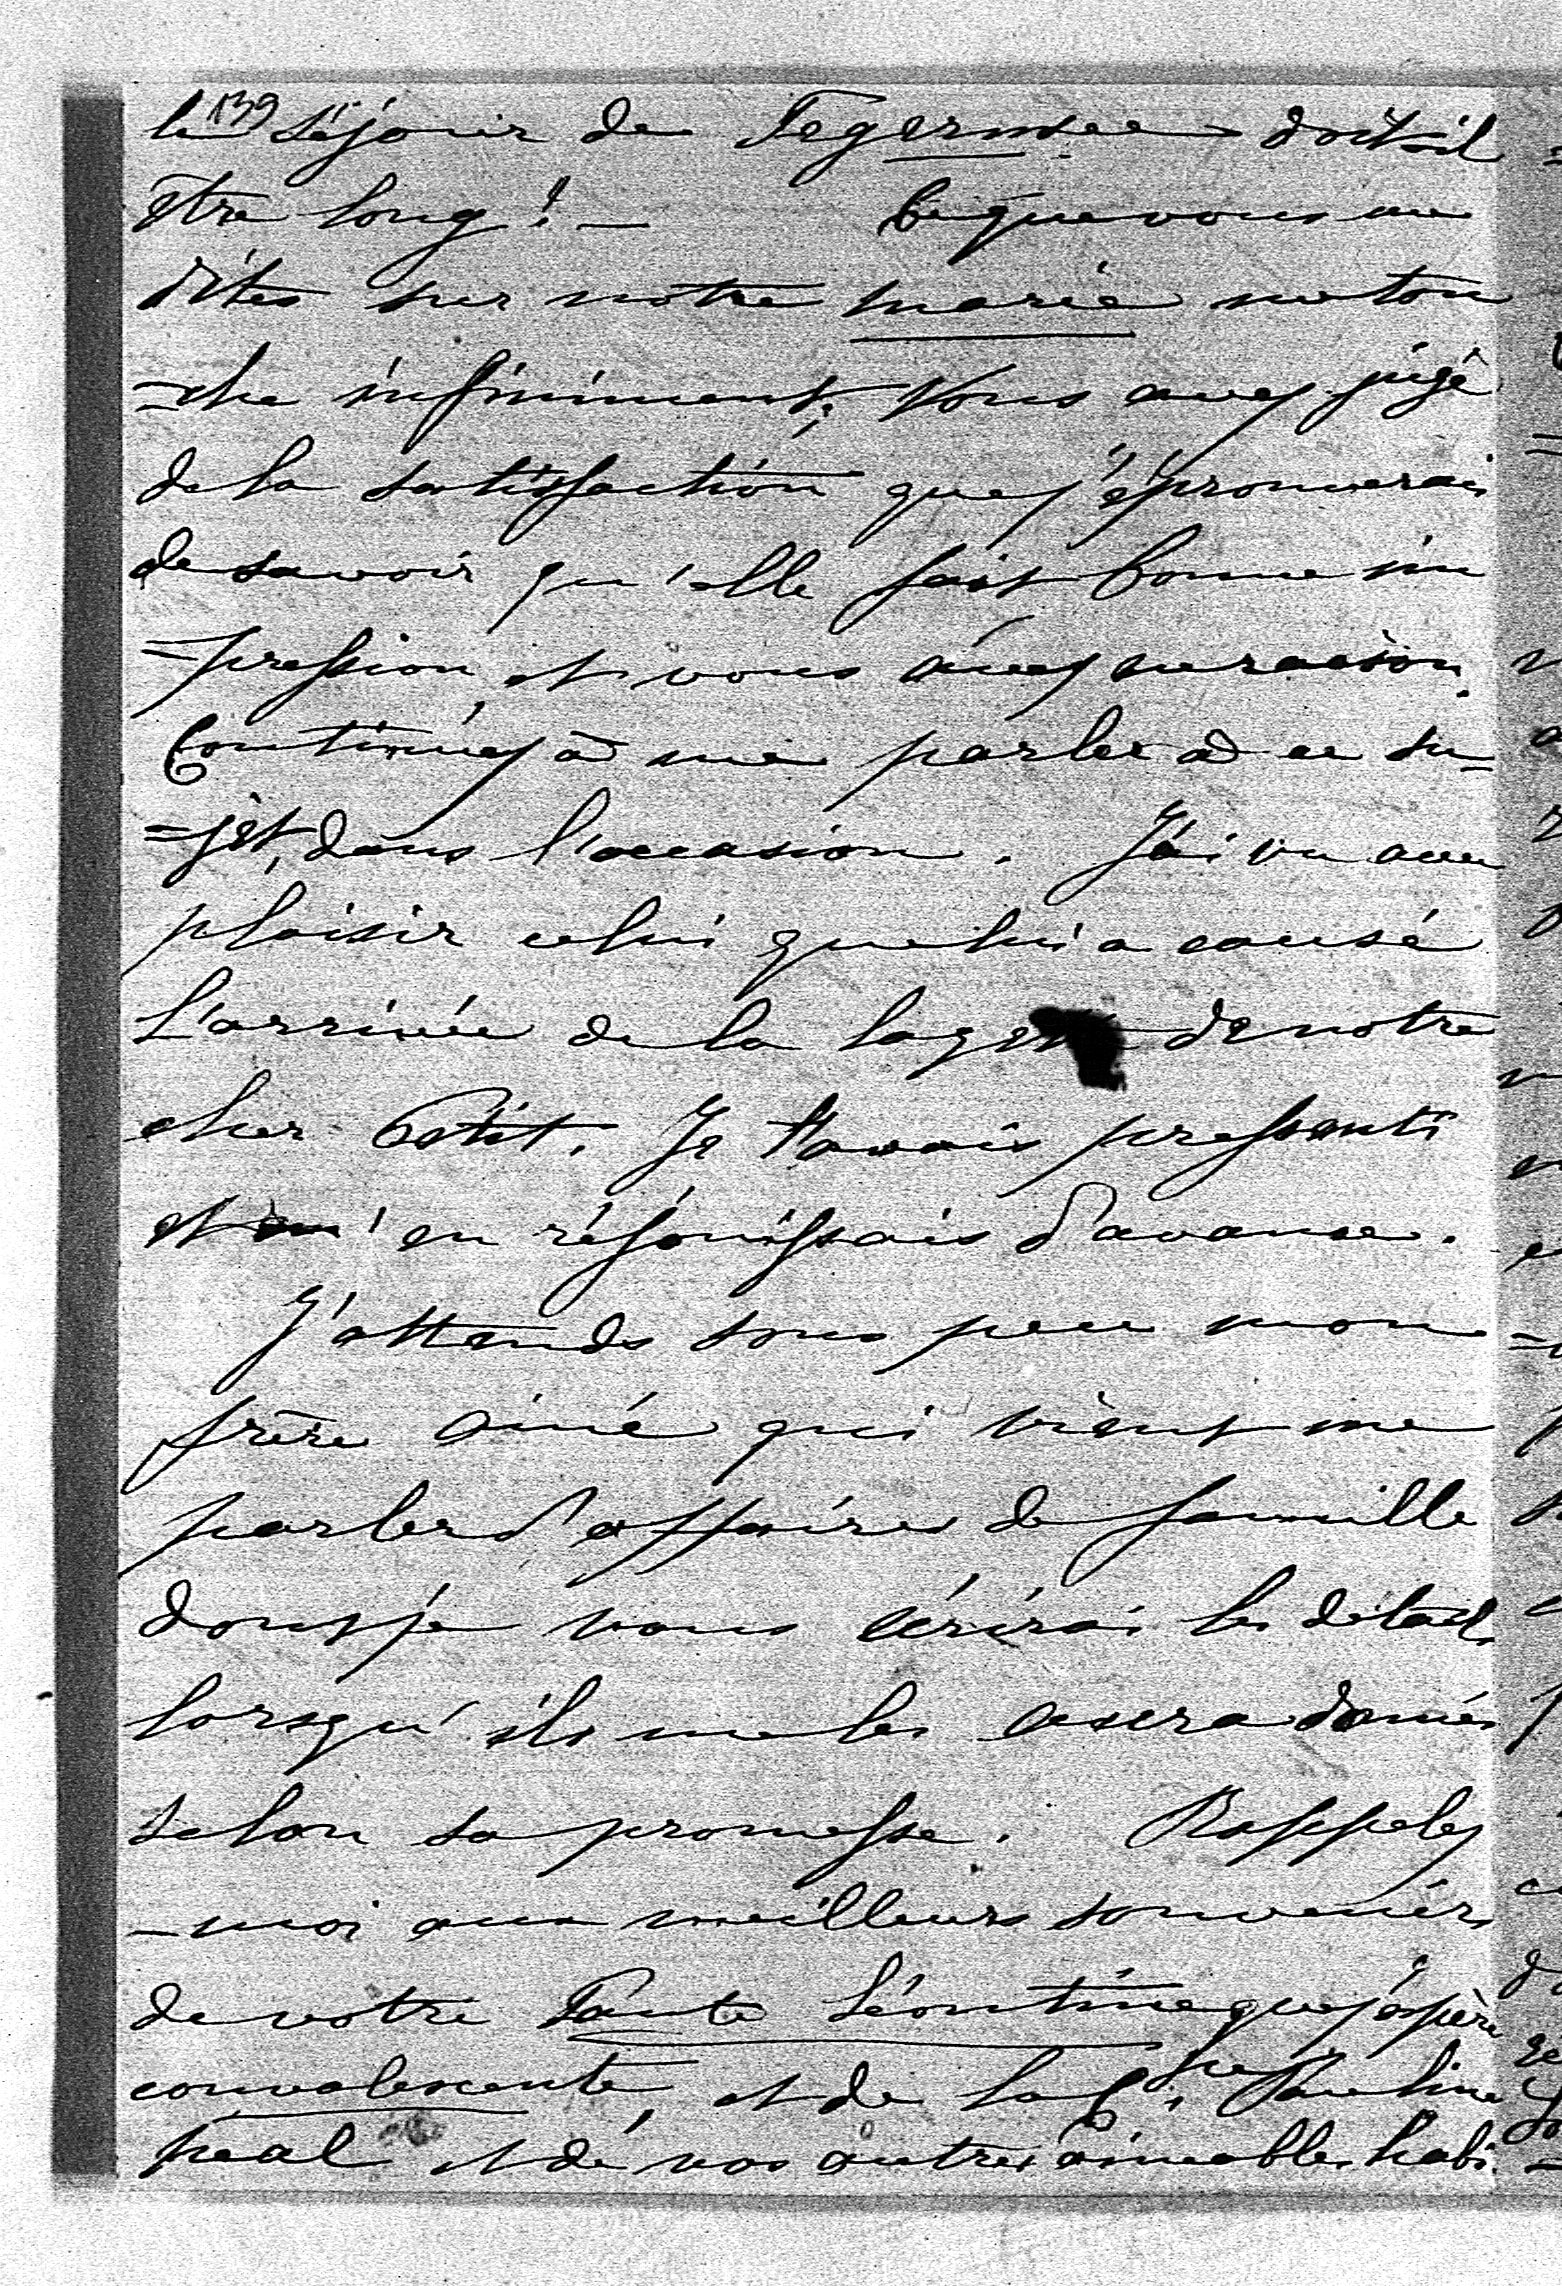 139
le séjour de Tegernsee doit-il
être long! — Ce que vous me
dites sur notre marie me tou
=che infiniment; Vous avez jugé
de la satisfaction que j'éprouverai
de savoir qu'elle fait bonne im
=pression, et vous avez eu raison.
Continuez à me parler à ce su=
=jèt, dans l'occasion. J'ai vu avec
plaisir celui que lui a causé
l'arrivée de la de notre
cher Petit. Je l'avais pressenti
et m'en réjouissais d'avance.
J'attends sous peu mon
frère ainé qui vient me
parler d'affaires de famille
dont je vous écrirai les détails
lorsqu'ils me les aura donnés
selon sa promesse. Rappelez
-moi aux meilleurs souvenirs
de votre Tante Léontine que j'éspère
convalescente, et de la Pauline
néal et de vos autres aimables habi